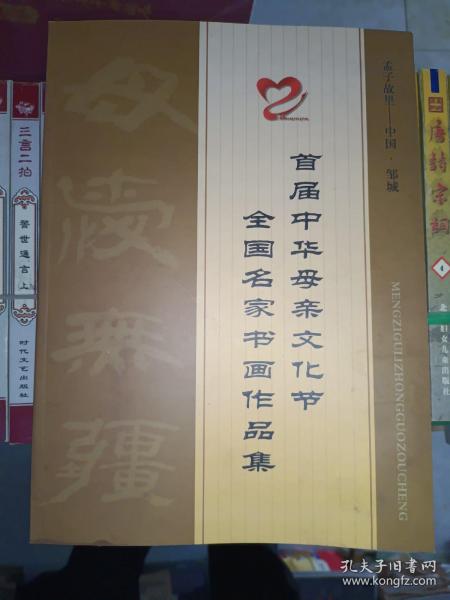 孟子故里——中国·邹城
首届中华母亲文化节
全国名家书画作品集
MENGZIGULIZHONGGUOZOUCHENG
母爱無疆
三言二拍
警世通言 上
时代文艺出版社
唐詩宋詞
4
妇女儿童出版社
孔夫子旧书网
www.kongfz.com